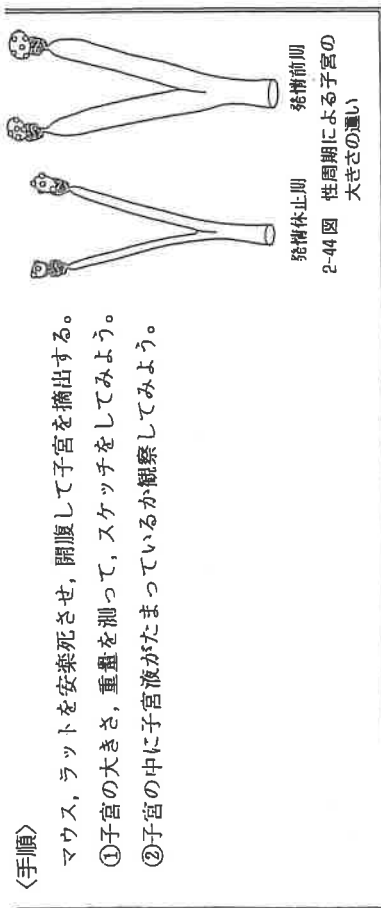 〈手順〉
マウス，ラットを安楽死させ，開腹して子宮を摘出する。
①子宮の大きさ，重量を測って，スケッチをしてみよう。
②子宮の中に子宮液がたまっているか観察してみよう。
発情休止期　発情前期
2-44図　性周期による子宮の
大きさの違い